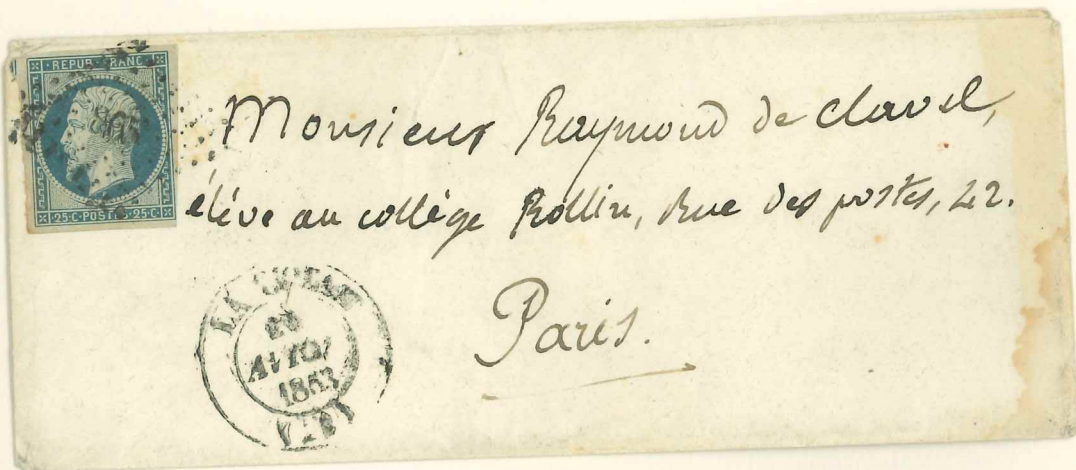 REPUB. FRANC.
25.C POSTES 25.C
Monsieur Raymond de Clavel,
élève au collège Rollin, Rue des postes, 42.
Paris.
LA CIOTAT
AVRIL
1853